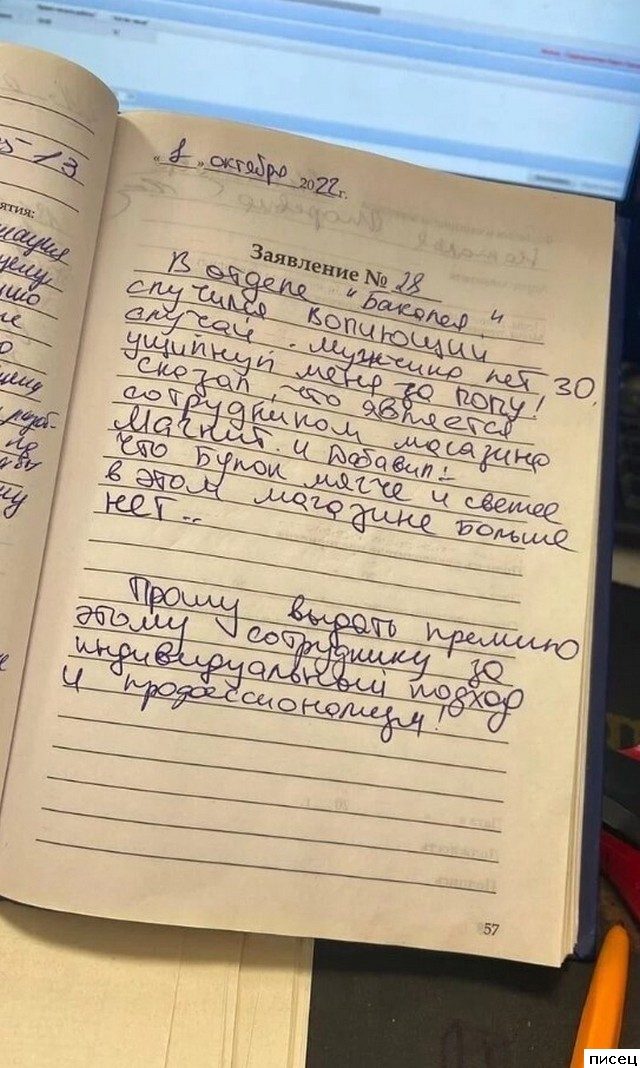 5-13
ятия:
« 1 » октября 2022 г.
Заявление № 28
В отделе "Бакалея"
случился вопиющий
случай. Мужчина лет 30,
ущипнул меня за попу!
Сказал, что является
сотрудником магазина
Магнит. И добавил:-
что булок мягче и свежее
в этом магазине больше
нет..
Прошу выдать премию
этому сотруднику за
индивидуальный подход
и профессионализм!
57
писец